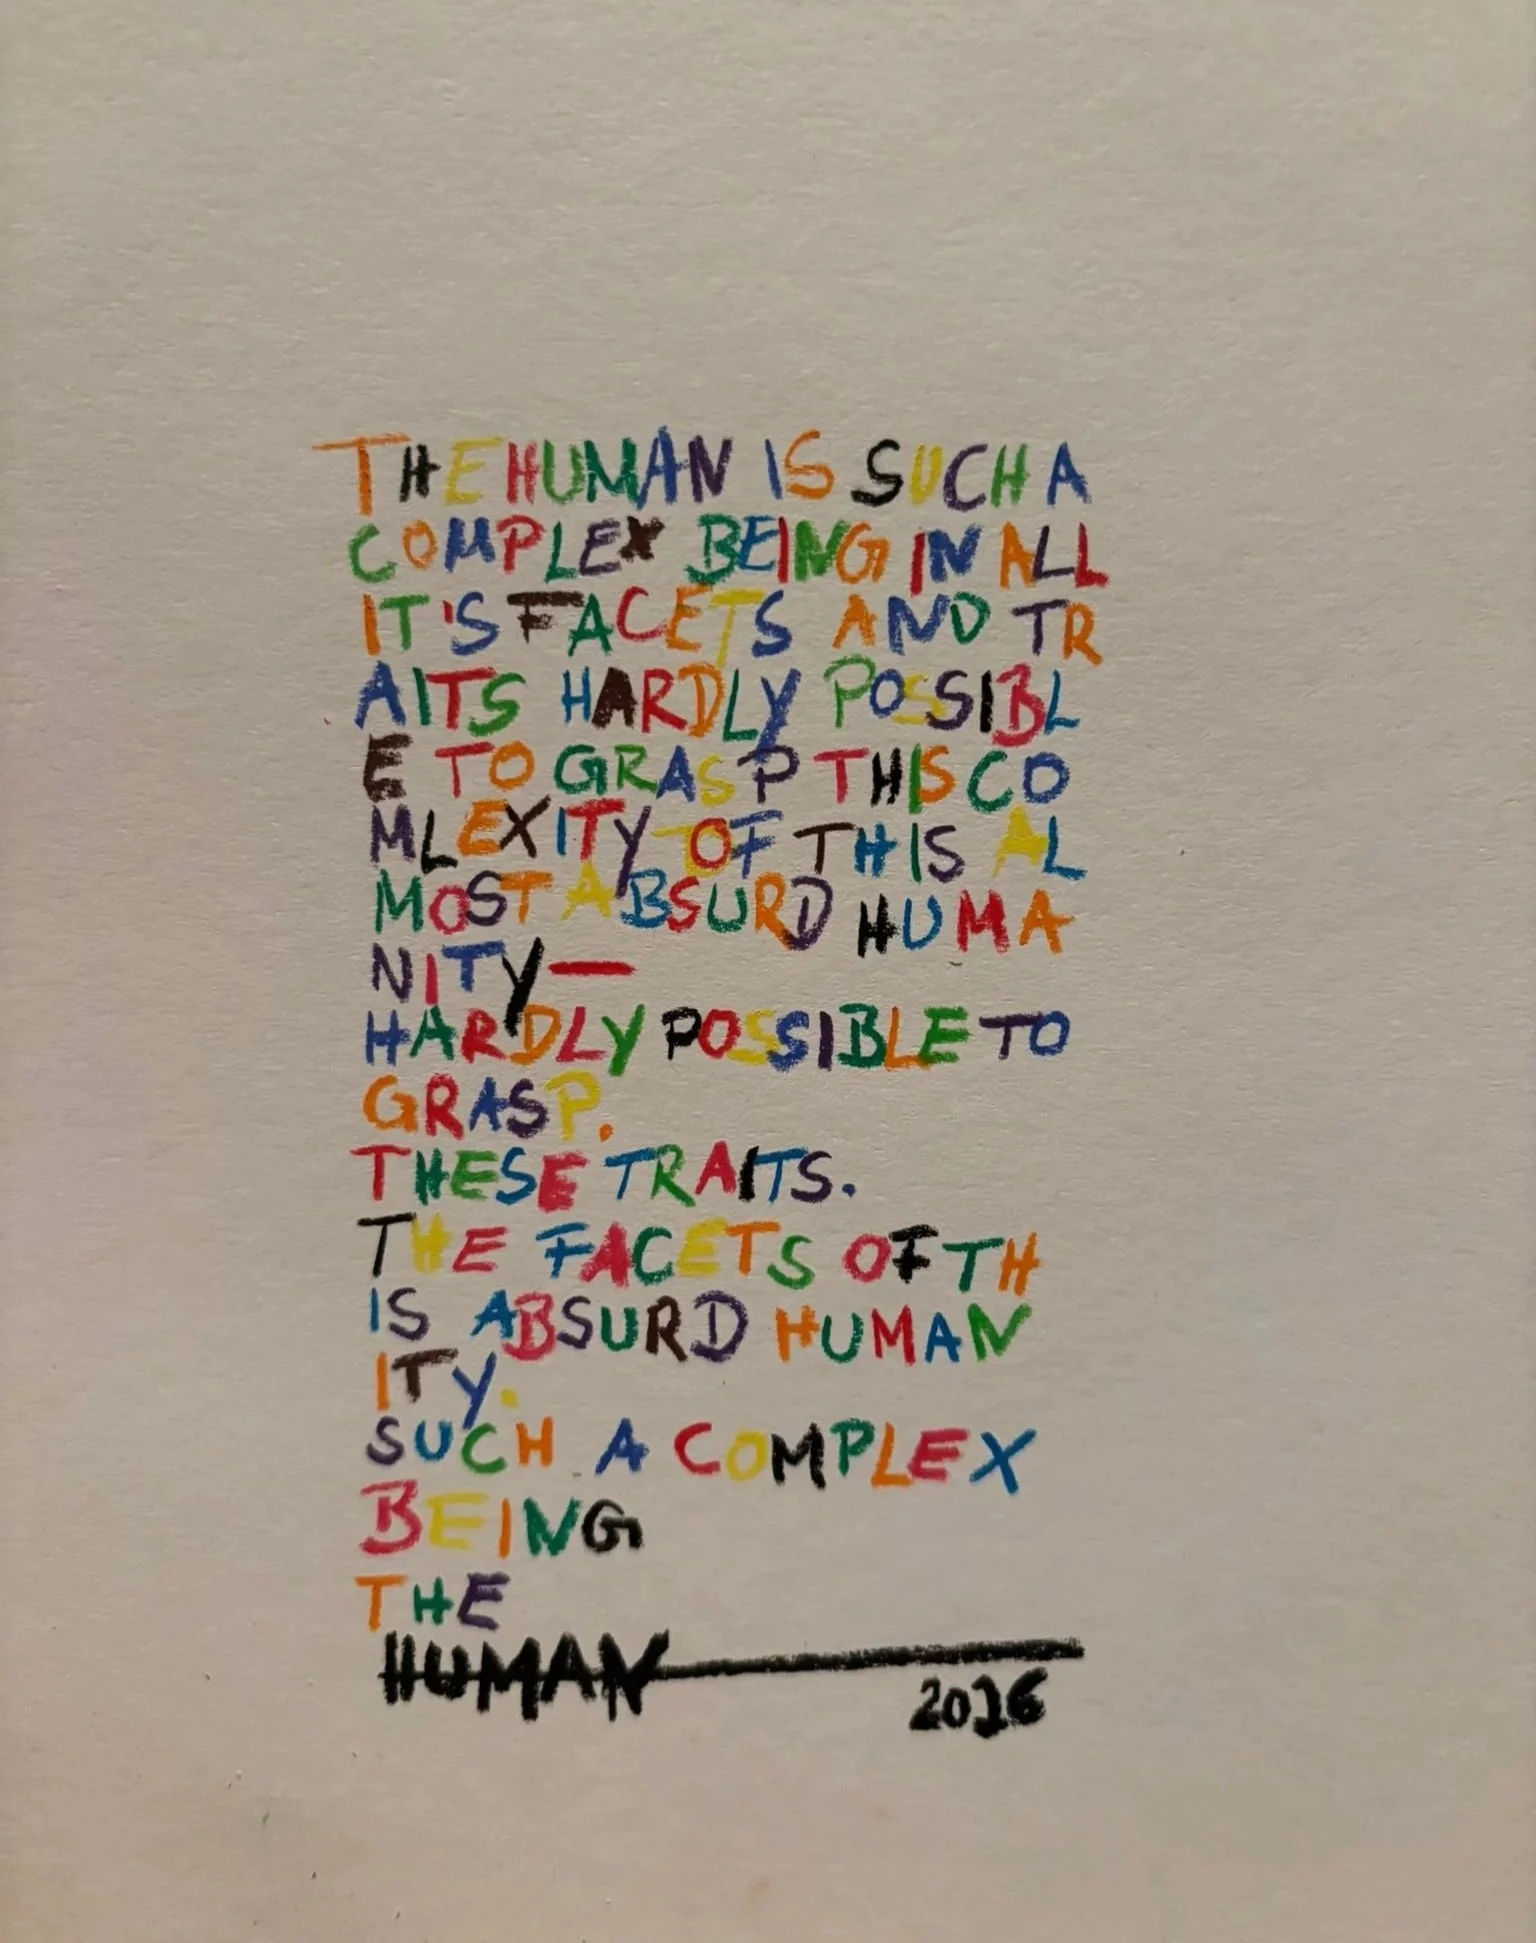 THE HUMAN IS SUCH A
COMPLEX BEING IN ALL
IT'S FACETS AND TR
AITS HARDLY POSSIBL
E TO GRASP THIS CO
MLEXITY OF THIS AL
MOST ABSURD HUMA
NITY—
HARDLY POSSIBLE TO
GRASP.
THESE TRAITS.
THE FACETS OF TH
IS ABSURD HUMAN
ITY.
SUCH A COMPLEX
BEING
THE
HUMAN